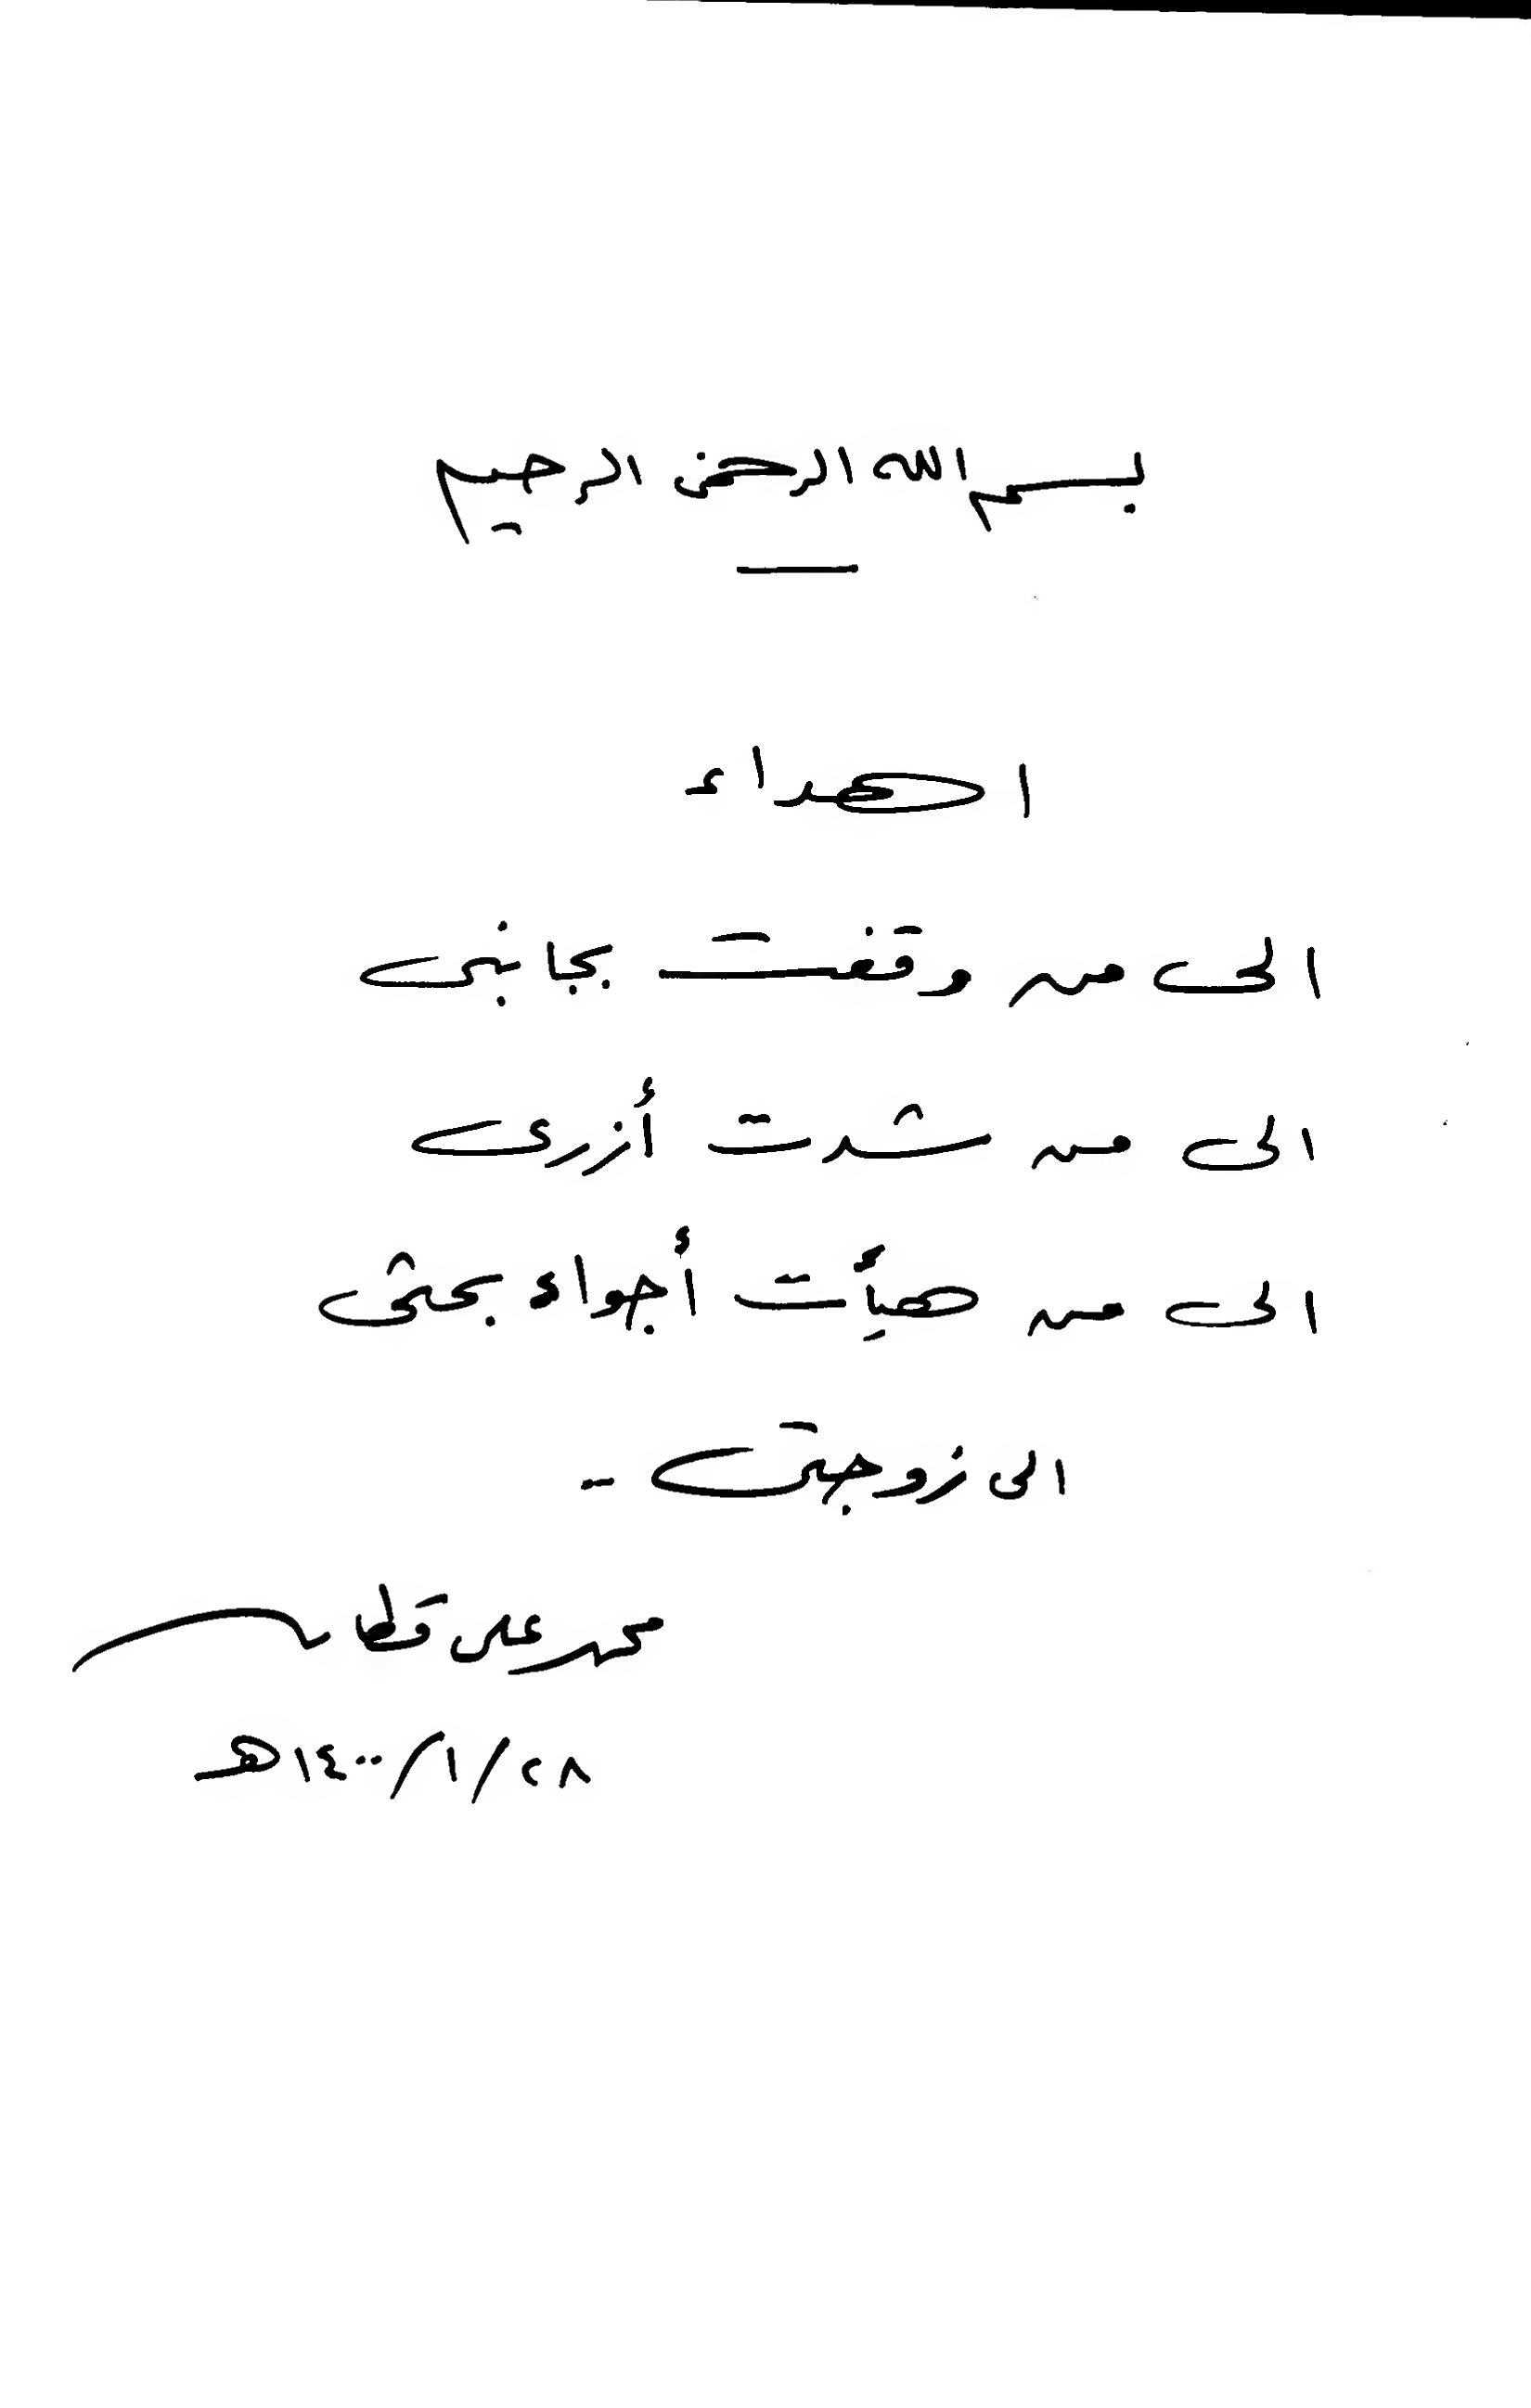 بسم الله الرحمن الرحيم
اهداء
الى من وقفت بجانبى
الى من شدت أزرى
الى من هيأت أجواء بحثى
الى زوجتى -
محمد على قطان
٢٨/١/١٤٠٠هـ